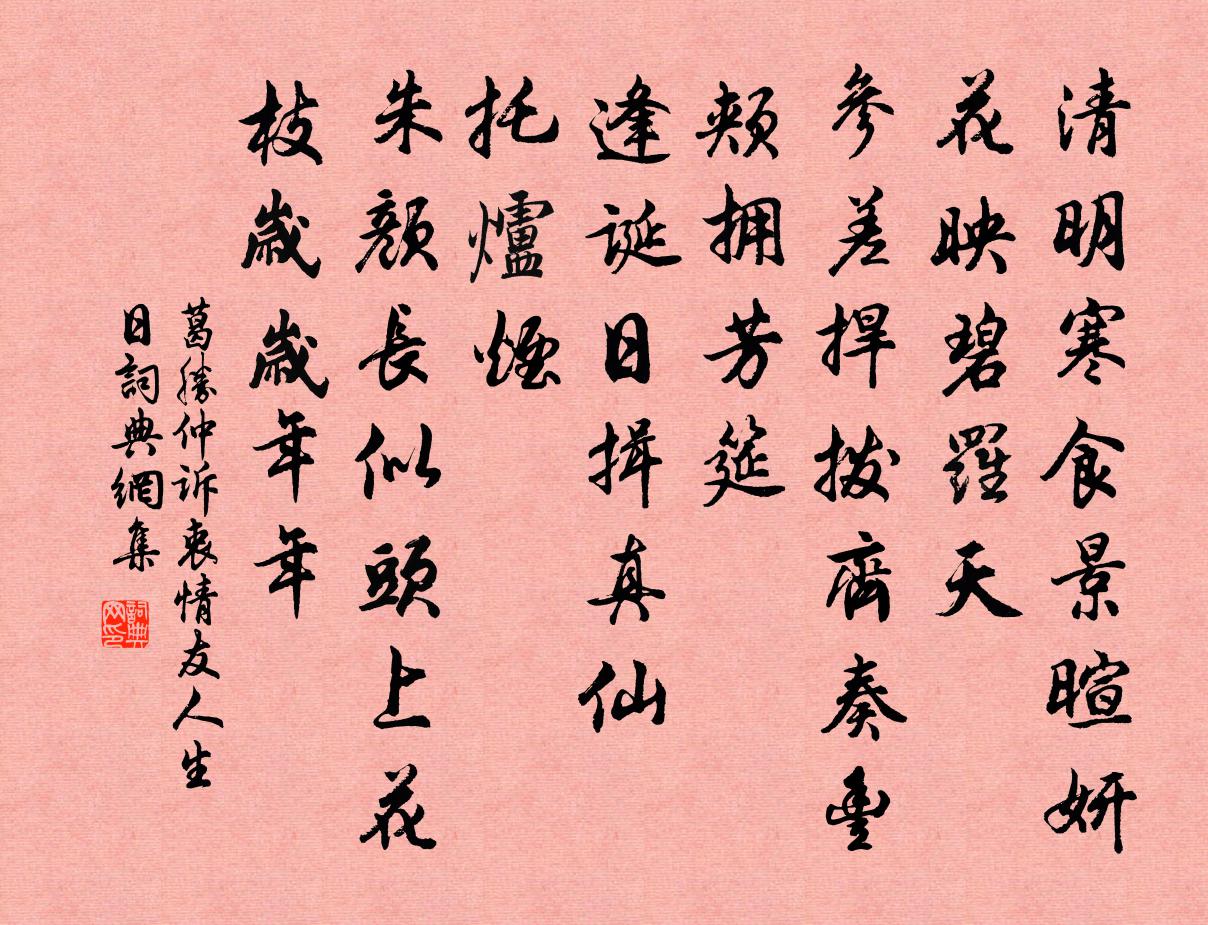 清明寒食景暄妍
花映碧羅天
參差捍撥齊奏豐
頰拥芳筵
逢誕日揖真仙
托爐煙
朱顏長似頭上花
枝歲歲年年
葛勝仲訴衷情友人生
日詞典網集
詞典网印